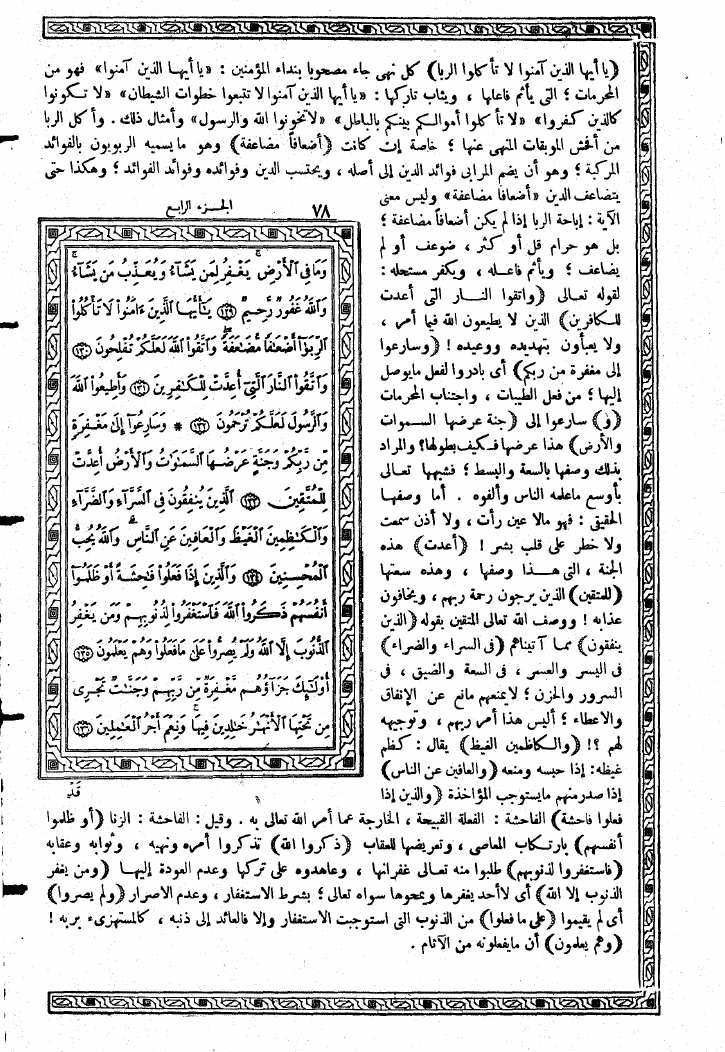 (يا أيها الذين آمنوا لا تأكلوا الربا) كل نهى جاء مصحوبا بنداء المؤمنين : «يا أيها الذين آمنوا» فهو من
المحرمات ؛ التى يأثم فاعلها ، ويثاب تاركها : «يا أيها الذين آمنوا لا تتبعوا خطوات الشيطان» «لا تكونوا
كالذين كفروا» «لا تأكلوا أموالكم بينكم بالباطل» «لا تخونوا الله والرسول» وأمثال ذلك . وأكل الربا
من أفحش الموبقات المنهى عنها ؛ خاصة إن كانت (أضعافاً مضاعفة) وهو ما يسميه الربويون بالفوائد
المركبة ؛ وهو أن يضم المرابى فوائد الدين إلى أصله ، ويحتسب الدين وفوائده وفوائد الفوائد ؛ وهكذا حتى
يتضاعف الدين «أضعافا مضاعفة» وليس معنى
الآية : إباحة الربا إذا لم يكن أضعافاً مضاعفة ؛
بل هو حرام قل أو كثر ، ضوعف أو لم
يضاعف ؛ ويأثم فاعله ، ويكفر مستحله :
لقوله تعالى (واتقوا النار التى أعدت
للكافرين) الذين لا يطيعون الله فيما أمر ،
ولا يعبأون بتهديده ووعيده ! (وسارعوا
إلى مغفرة من ربكم) أى بادروا لفعل مايوصل
إليها ؛ من فعل الطيبات ، واجتناب المحرمات
(و) سارعوا إلى (جنة عرضها السموات
والأرض) هذا عرضها فكيف بطولها؟ والمراد
بذلك وصفها بالسعة والبسط ؛ فشبهها تعالى
بأوسع ماعلمه الناس وألفوه . أما وصفها
الحقيقى : فهو مالا عين رأت ، ولا أذن سمعت
ولا خطر على قلب بشر ! (أعدت) هذه
الجنة ، التى هذا وصفها ، وهذه سعتها
(للمتقين) الذين يرجون رحمة ربهم ، ويخافون
عذابه ! ووصف الله تعالى المتقين بقوله (الذين
ينفقون) مما آتيناهم (فى السراء والضراء)
فى اليسر والعسر ، فى السعة والضيق ، فى
السرور والحزن ؛ لا يمنعهم مانع عن الإنفاق
والاعطاء ؛ أليس هذا أمر ربهم ، وتوجيهه
لهم ؟! (والكاظمين الغيظ) يقال : كظم
غيظه : إذا حبسه ومنعه (والعافين عن الناس)
إذا صدر منهم مايستوجب المؤاخذة (والذين إذا
٧٨ الجزء الرابع
وَمَا فِى ٱلْأَرْضِ يَغْفِرُ لِمَن يَشَآءُ وَيُعَذِّبُ مَن يَشَآءُ
وَٱللَّهُ غَفُورٌ رَّحِيمٌ ١٢٩ يَٰٓأَيُّهَا ٱلَّذِينَ ءَامَنُوا۟ لَا تَأْكُلُوا۟
ٱلرِّبَوٰٓا۟ أَضْعَٰفًا مُّضَٰعَفَةً وَٱتَّقُوا۟ ٱللَّهَ لَعَلَّكُمْ تُفْلِحُونَ ١٣٠
وَٱتَّقُوا۟ ٱلنَّارَ ٱلَّتِىٓ أُعِدَّتْ لِلْكَٰفِرِينَ ١٣١ وَأَطِيعُوا۟ ٱللَّهَ
وَٱلرَّسُولَ لَعَلَّكُمْ تُرْحَمُونَ ١٣٢ * وَسَارِعُوٓا۟ إِلَىٰ مَغْفِرَةٍ
مِّن رَّبِّكُمْ وَجَنَّةٍ عَرْضُهَا ٱلسَّمَٰوَٰتُ وَٱلْأَرْضُ أُعِدَّتْ
لِلْمُتَّقِينَ ١٣٣ ٱلَّذِينَ يُنفِقُونَ فِى ٱلسَّرَّآءِ وَٱلضَّرَّآءِ
وَٱلْكَٰظِمِينَ ٱلْغَيْظَ وَٱلْعَافِينَ عَنِ ٱلنَّاسِ وَٱللَّهُ يُحِبُّ
ٱلْمُحْسِنِينَ ١٣٤ وَٱلَّذِينَ إِذَا فَعَلُوا۟ فَٰحِشَةً أَوْ ظَلَمُوٓا۟
أَنفُسَهُمْ ذَكَرُوا۟ ٱللَّهَ فَٱسْتَغْفَرُوا۟ لِذُنُوبِهِمْ وَمَن يَغْفِرُ
ٱلذُّنُوبَ إِلَّا ٱللَّهُ وَلَمْ يُصِرُّوا۟ عَلَىٰ مَا فَعَلُوا۟ وَهُمْ يَعْلَمُونَ ١٣٥
أُو۟لَٰٓئِكَ جَزَآؤُهُم مَّغْفِرَةٌ مِّن رَّبِّهِمْ وَجَنَّٰتٌ تَجْرِى
مِن تَحْتِهَا ٱلْأَنْهَٰرُ خَٰلِدِينَ فِيهَا وَنِعْمَ أَجْرُ ٱلْعَٰمِلِينَ ١٣٦
قَدْ
فعلوا فاحشة) الفاحشة : الفعلة القبيحة ، الخارجة عما أمر الله تعالى به . وقيل : الفاحشة : الزنا (أو ظلموا
أنفسهم) بارتكاب المعاصى ، وتعريضها للعقاب (ذكروا الله) تذكروا أمره ونهيه ، وثوابه وعقابه
(فاستغفروا لذنوبهم) طلبوا منه تعالى غفرانها ، وعاهدوه على تركها وعدم العودة إليها (ومن يغفر
الذنوب إلا الله) أى لاأحد يغفرها ويمحوها سواه تعالى ؛ بشرط الاستغفار ، وعدم الاصرار (ولم يصروا)
أى لم يقيموا (على ما فعلوا) من الذنوب التى استوجبت الاستغفار وإلا فالعائد إلى ذنبه ، كالمستهزىء بربه !
(وهم يعلمون) أن مايفعلونه من الآثام .